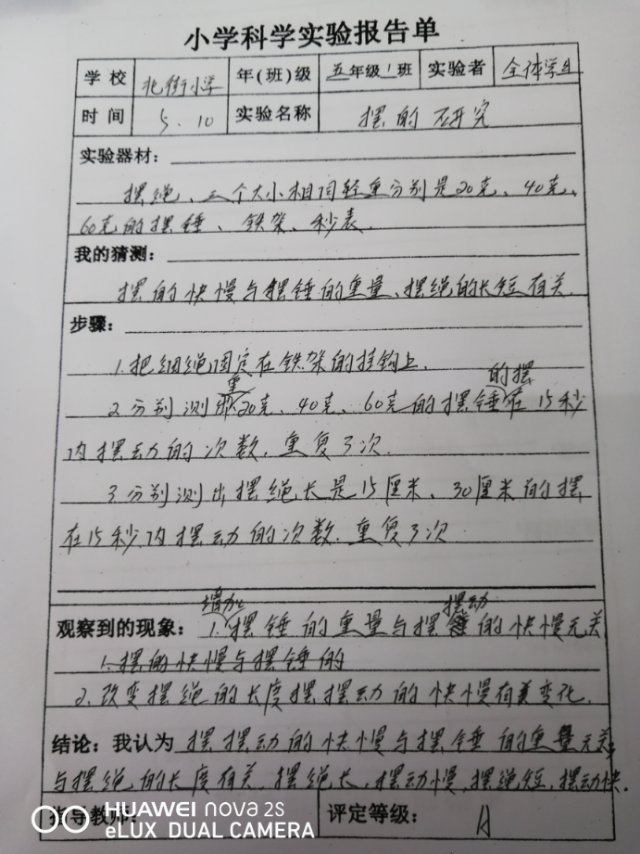 小学科学实验报告单
学校 北街小学 年(班)级 五年级1班 实验者 全体学生
时间 5.10 实验名称 摆的研究
实验器材：
摆绳、三个大小相同轻重分别是20克、40克、
60克的摆锤、铁架、秒表.
我的猜测：
摆的快慢与摆锤的重量、摆绳的长短有关.
步骤：
1.把细绳固定在铁架的挂钩上.
重 的摆
2.分别测出20克、40克、60克的摆锤在15秒
内摆动的次数,重复3次.
3.分别测出摆绳长是15厘米、30厘米的摆
在15秒内摆动的次数.重复3次
增加 摆动
观察到的现象：1.摆锤的重量与摆的快慢无关
1.摆的快慢与摆锤的
2.改变摆绳的长度摆摆动的快慢有变化.
结论：我认为 摆摆动的快慢与摆锤的重量无关,
与摆绳的长度有关.摆绳长,摆动慢,摆绳短,摆动快.
指导教师： 评定等级： A
HUAWEI nova 2S
eLUX DUAL CAMERA